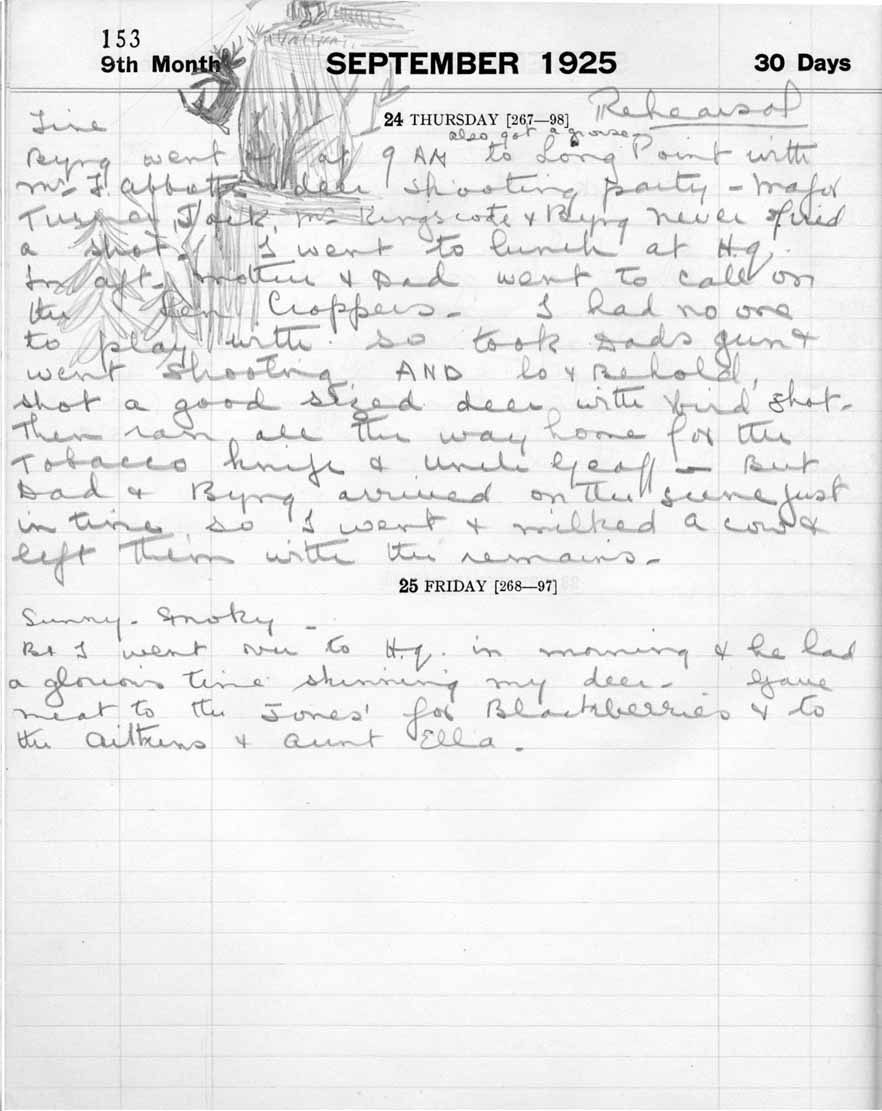 153
9th Month SEPTEMBER 1925 30 Days
24 THURSDAY [267—98] Rehearsal
Fine also got a grouse—
Byng went off at 9 AM to Long Point with
Mr F. Abbott deer shooting party - Major
Turner, Jack, Mr Kingscote & Byng never fired
a shot. I went to lunch at H.q.
In aft. Mother & Dad went to call on
the Len Croppers. I had no one
to play with so took Dads gun &
went shooting, AND lo & Behold,
shot a good sized deer with bird shot.
Then ran all the way home for the
Tobacco knife & Uncle Geoff - But
Dad & Byng arrived on the scene just
in time so I went & milked a cow &
left them with the remains.
25 FRIDAY [268—97]
Sunny. Smoky -
B & I went over to H.q. in morning & he had
a glorious time skinning my deer. Gave
meat to the Jones' for Blackberries & to
the Aitkens & Aunt Ella.